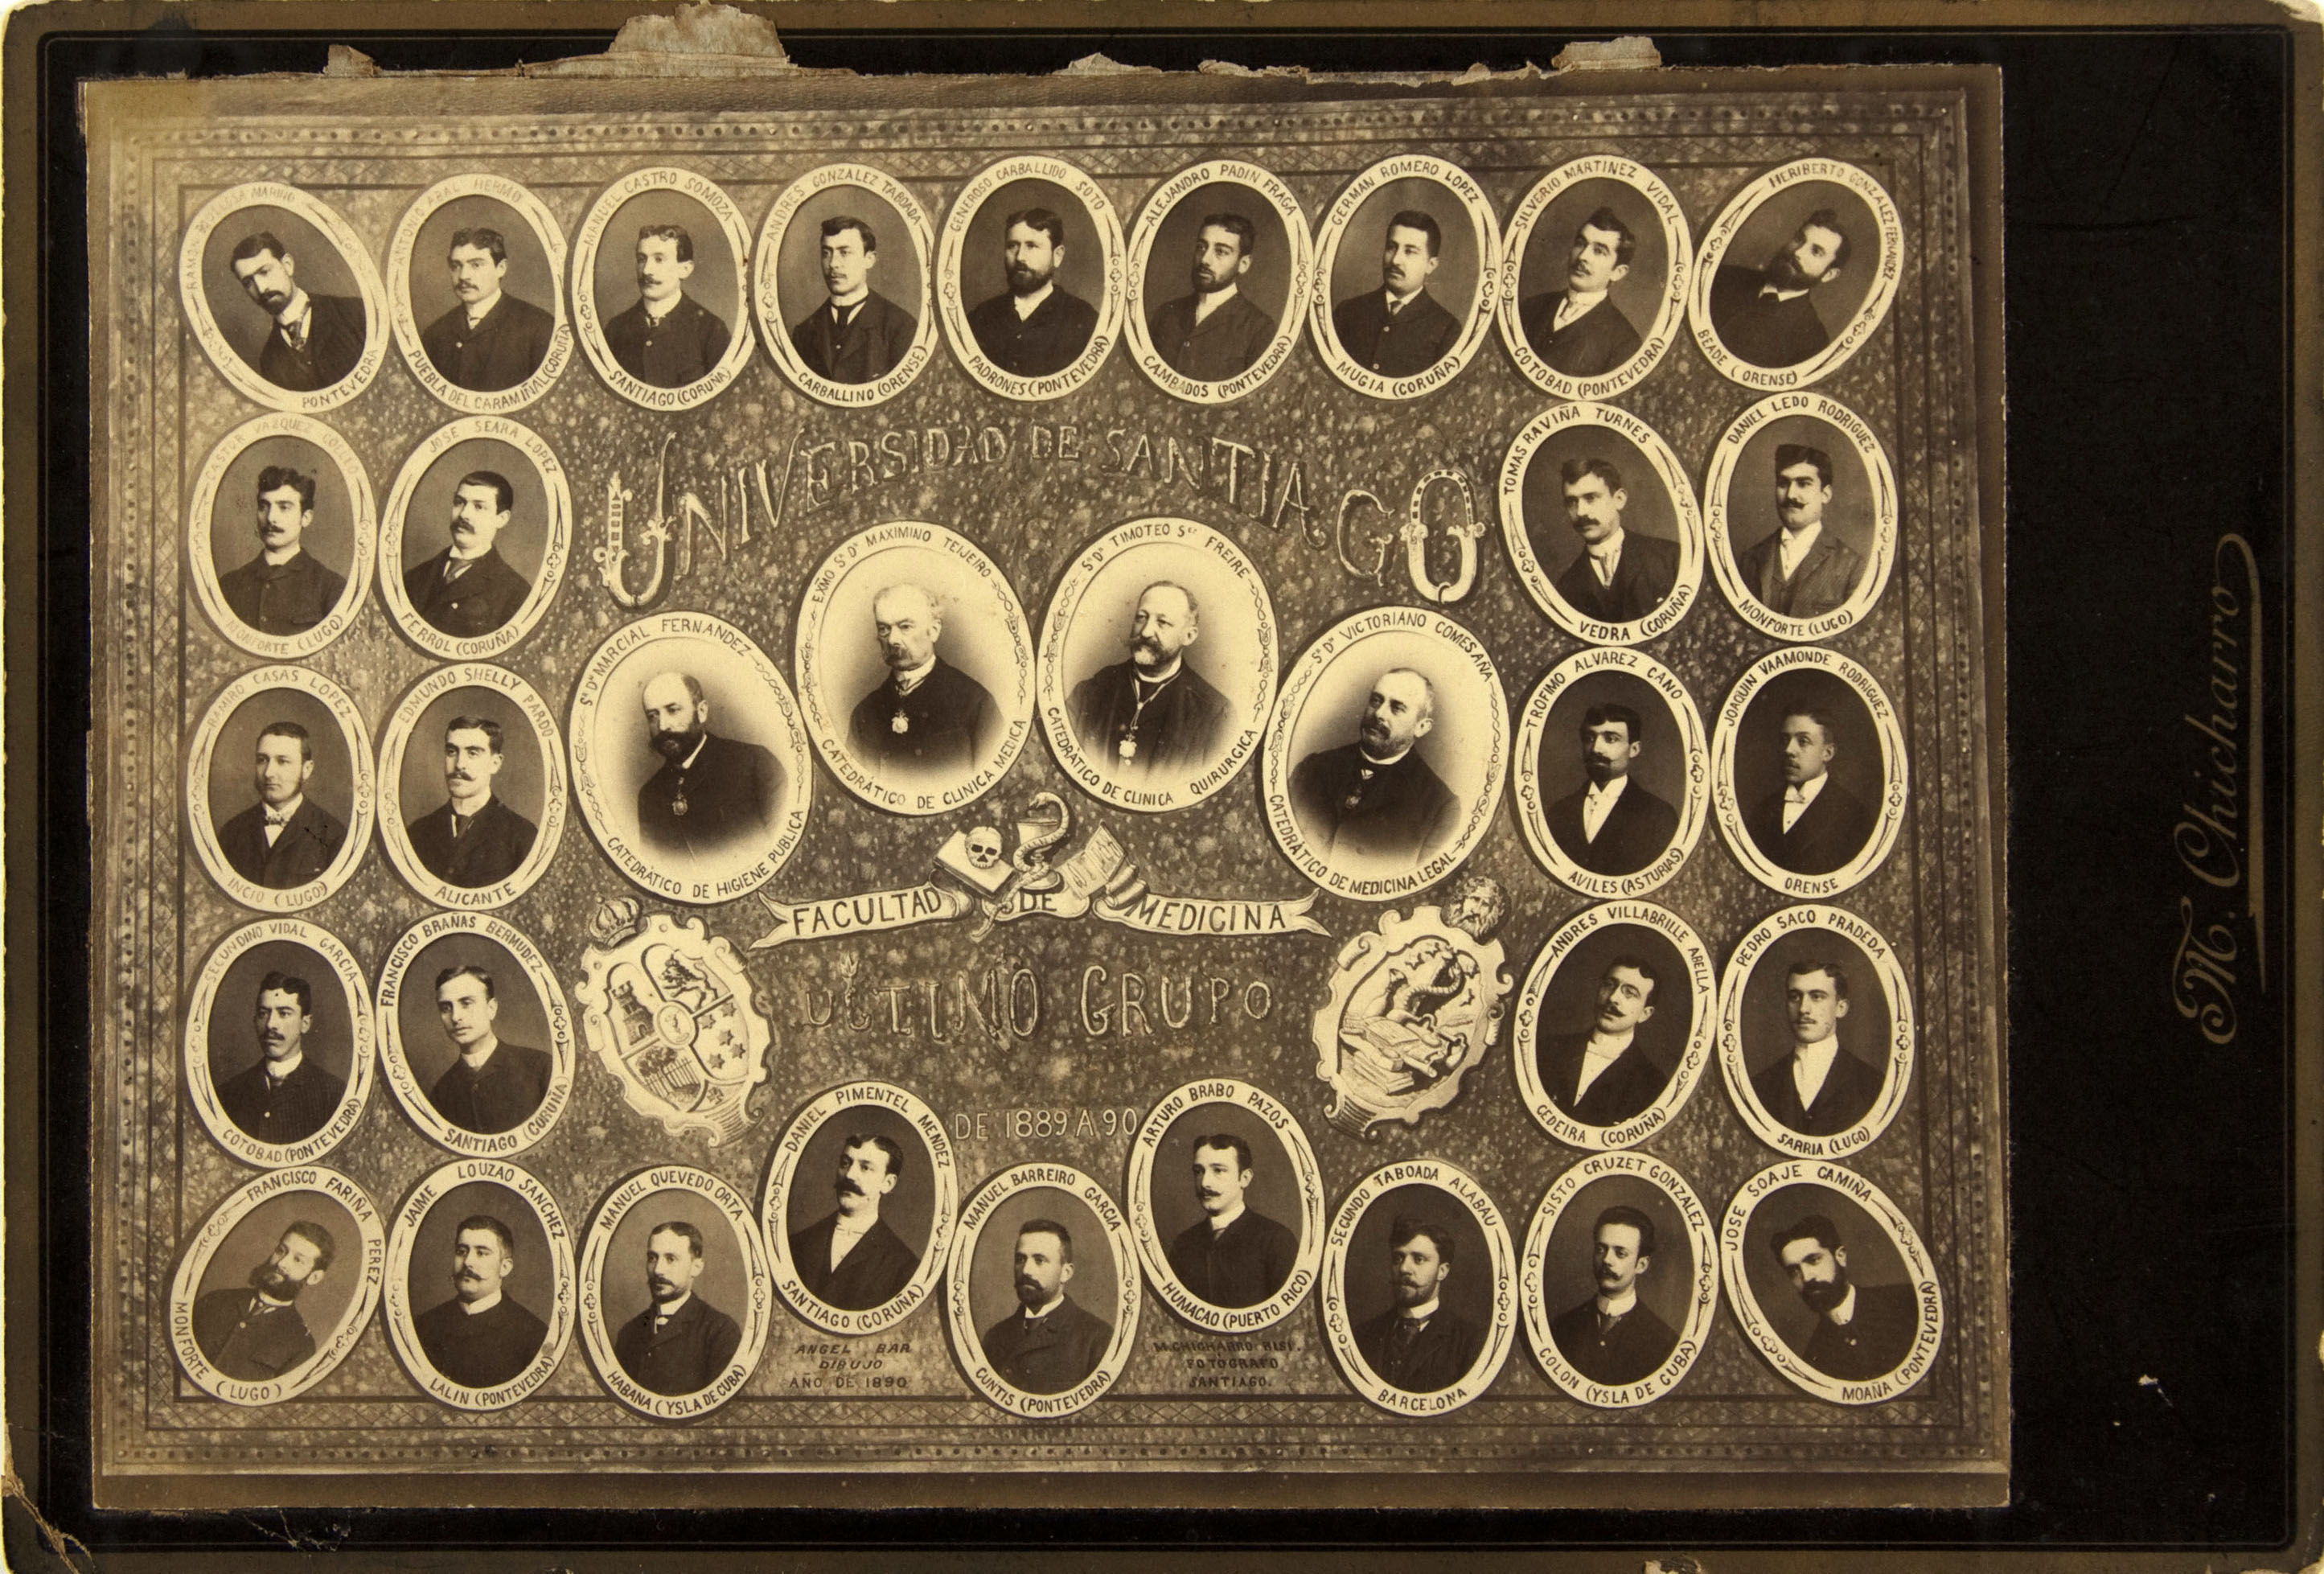 RAMON
MARIÑO
PONTEVEDRA
ANTONIO ABAL HERMO
PUEBLA DEL CARAMIÑAL (CORUÑA)
MANUEL CASTRO SOMOZA
SANTIAGO (CORUÑA)
ANDRES GONZALEZ TABOADA
CARBALLINO (ORENSE)
GENEROSO CARBALLIDO SOTO
PADRONES (PONTEVEDRA)
ALEJANDRO PADIN FRAGA
CAMBADOS (PONTEVEDRA)
GERMAN ROMERO LOPEZ
MUGIA (CORUÑA)
SILVERIO MARTINEZ VIDAL
COTOBAD (PONTEVEDRA)
HERIBERTO GONZALEZ FERNANDEZ
BEADE (ORENSE)
UNIVERSIDAD DE SANTIAGO
VAZQUEZ
MONFORTE (LUGO)
JOSE SEARA LOPEZ
FERROL (CORUÑA)
TOMAS RAVIÑA TURNES
VEDRA (CORUÑA)
DANIEL LEDO RODRIGUEZ
MONFORTE (LUGO)
Sr Dn MARCIAL FERNANDEZ
CATEDRÁTICO DE HIGIENE PUBLICA
EXMO Sr Dn MAXIMINO TEIJEIRO
CATEDRÁTICO DE CLINICA MEDICA
Sr Dn TIMOTEO Sez FREIRE
CATEDRÁTICO DE CLINICA QUIRURGICA
Sr Dn VICTORIANO COMESAÑA
CATEDRÁTICO DE MEDICINA LEGAL
RAMIRO CASAS LOPEZ
INCIO (LUGO)
EDMUNDO SHELLY PARDO
ALICANTE
TROFIMO ALVAREZ CANO
AVILES (ASTURIAS)
JOAQUIN VAAMONDE RODRIGUEZ
ORENSE
FACULTAD DE MEDICINA
ULTIMO GRUPO
DE 1889 A 90
SECUNDINO VIDAL GARCIA
COTOBAD (PONTEVEDRA)
FRANCISCO BRAÑAS BERMUDEZ
SANTIAGO (CORUÑA)
ANDRES VILLABRILLE ABELLA
CEDEIRA (CORUÑA)
PEDRO SACO PRADEDA
SARRIA (LUGO)
FRANCISCO FARIÑA PEREZ
MONFORTE (LUGO)
JAIME LOUZAO SANCHEZ
LALIN (PONTEVEDRA)
MANUEL QUEVEDO ORTA
HABANA (YSLA DE CUBA)
DANIEL PIMENTEL MENDEZ
SANTIAGO (CORUÑA)
MANUEL BARREIRO GARCIA
CUNTIS (PONTEVEDRA)
ARTURO BRABO PAZOS
HUMACAO (PUERTO RICO)
SEGUNDO TABOADA ALABAU
BARCELONA
SISTO CRUZET GONZALEZ
COLON (YSLA DE CUBA)
JOSE SOAJE CAMIÑA
MOAÑA (PONTEVEDRA)
ANGEL BAR
DIBUJO
AÑO DE 1890
M. CHICHARRO BISI.
FOTOGRAFO
SANTIAGO.
M. Chicharro